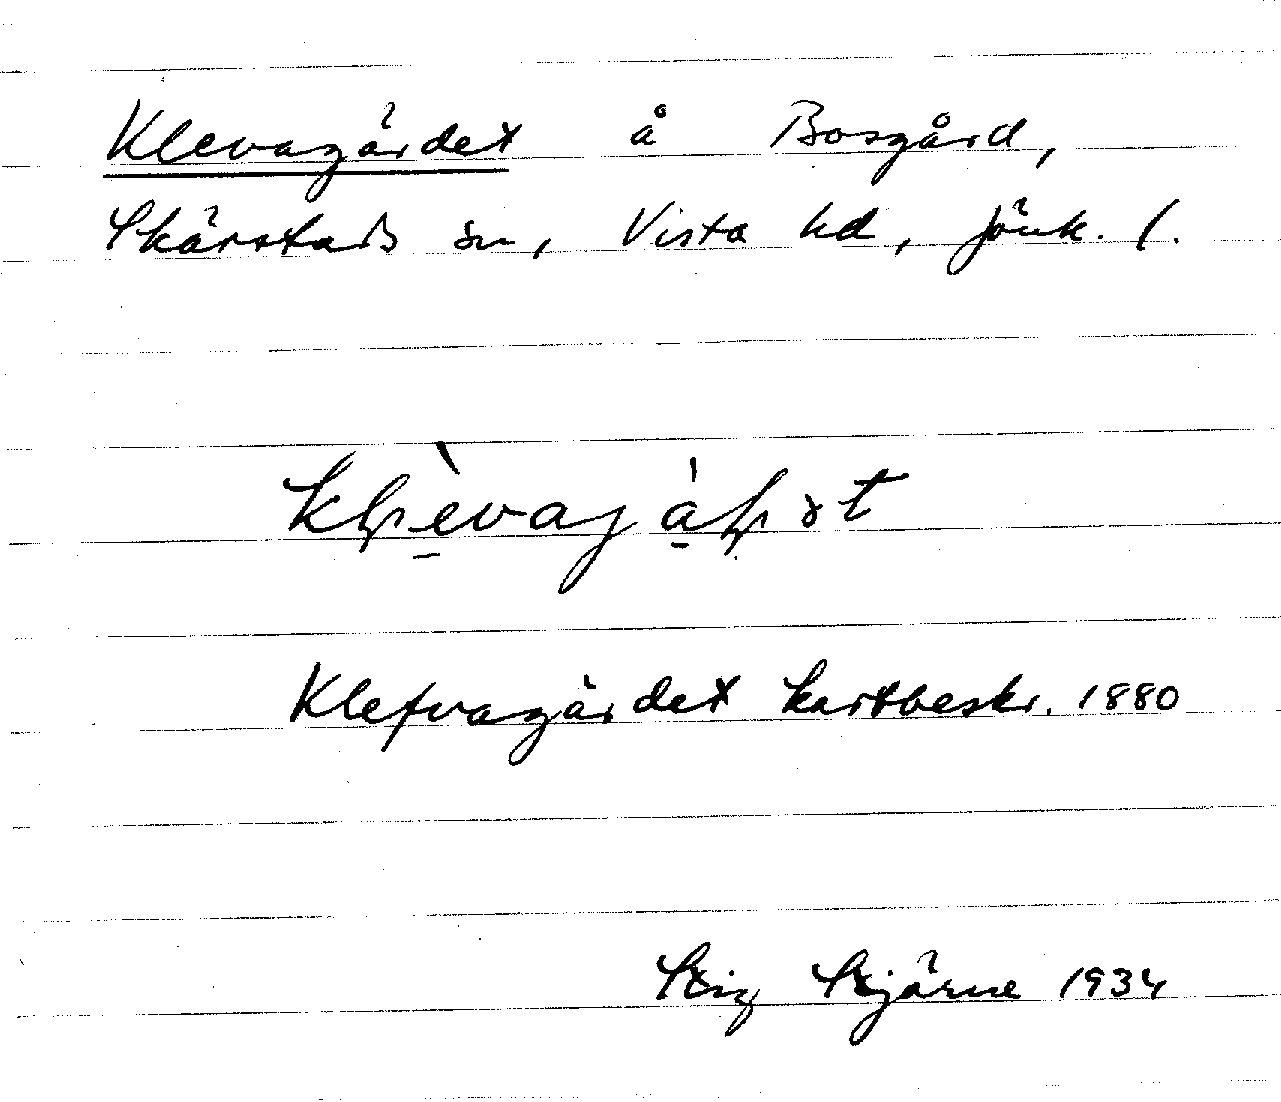 Klevagärdet å Bosgård,
Skärstads sn, Vista hd, Jönk. l.
Klefvagärdet kartbeskr. 1880
Stig Stjärne 1934